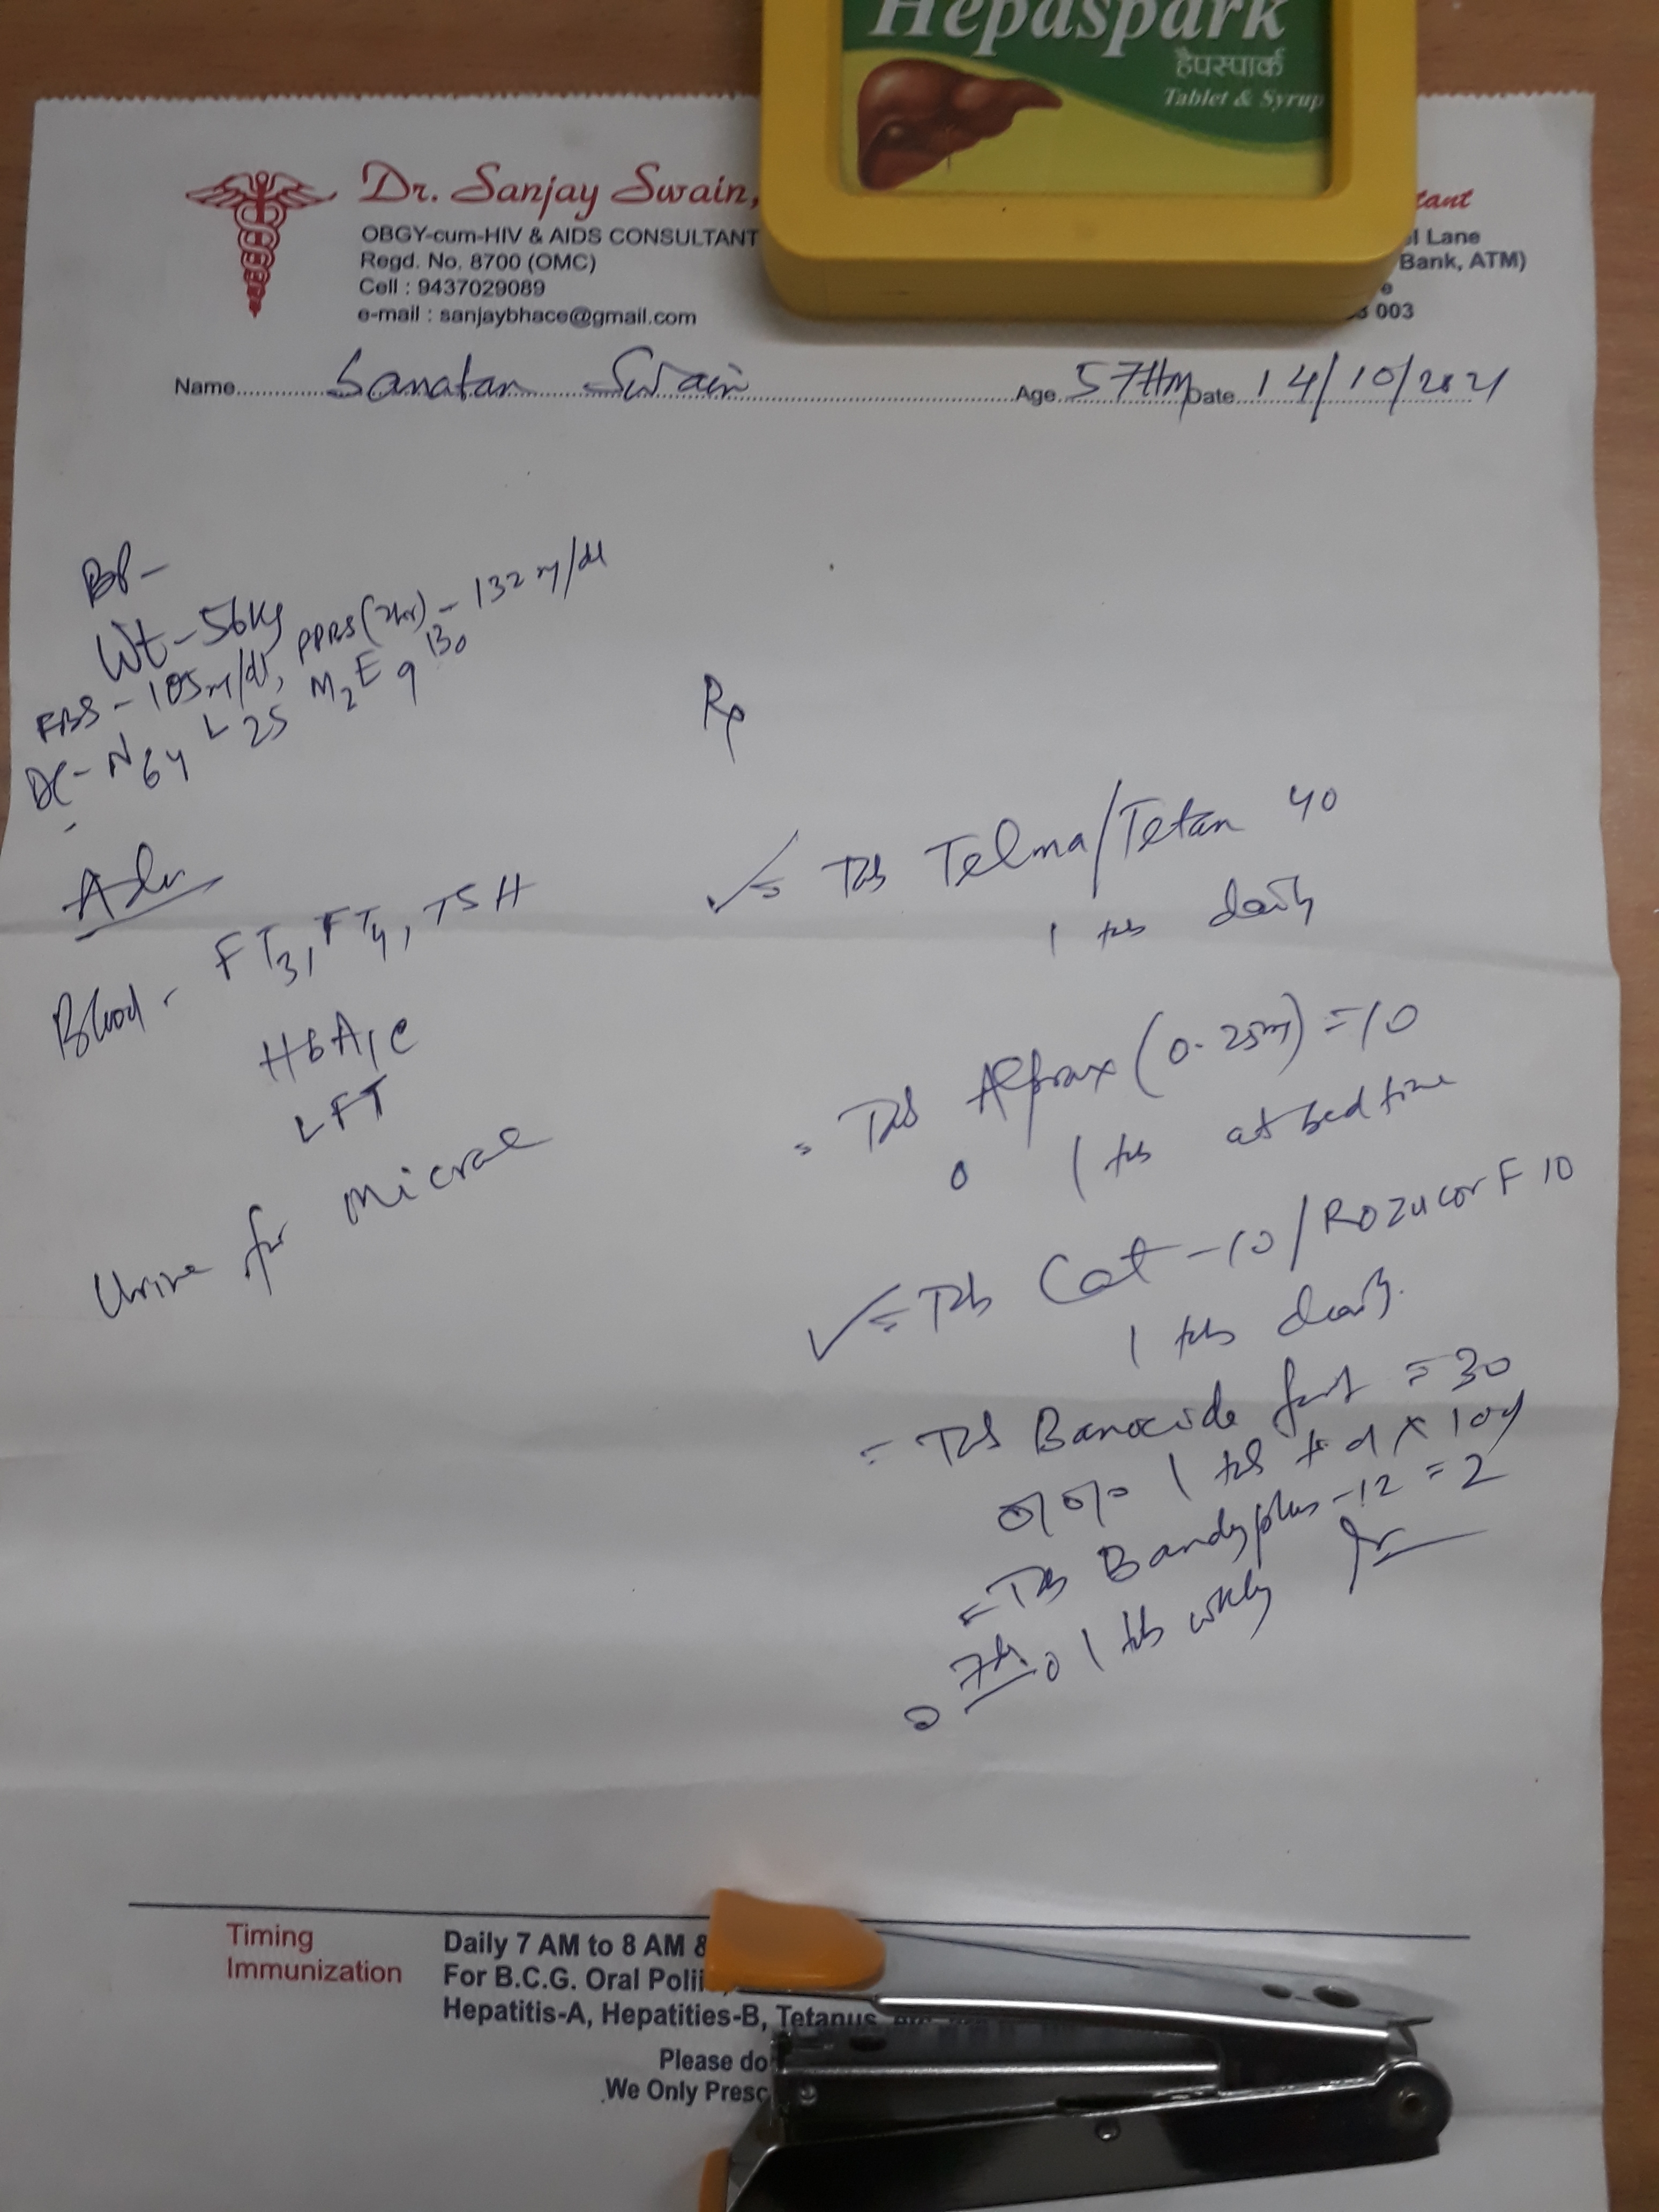 Hepaspark
हैपस्पार्क
Tablet & Syrup
Dr. Sanjay Swain,
OBGY-cum-HIV & AIDS CONSULTANT
Regd. No. 8700 (OMC)
Cell : 9437029089
e-mail : sanjaybhace@gmail.com
tant
l Lane
Bank, ATM)
e
003
Name Sanatan Swain Age 57 Date 14/10/2021
BP-
Wt-56kg
FBS-105m/dl, PPBS(2hr)-132m/dl
DC- N64 L25 M2 E9 B0
Adv
Blood- FT3, FT4, TSH
HbA1c
LFT
Urine for Micral
Rx
Tab Telma/Tetan 40
1 tab daily
Tab Alprax (0.25m) =10
0 1 tab at bed time
Tab Cat-10/Rozucor F 10
1 tab daily
Tab Banocide fort =30
1 tab td x 10d
Tab Bandyplus-12 =2
0 1 tab wkly
Timing
Immunization
Daily 7 AM to 8 AM &
For B.C.G. Oral Polii
Hepatitis-A, Hepatities-B, Tetanus
Please do
We Only Presc